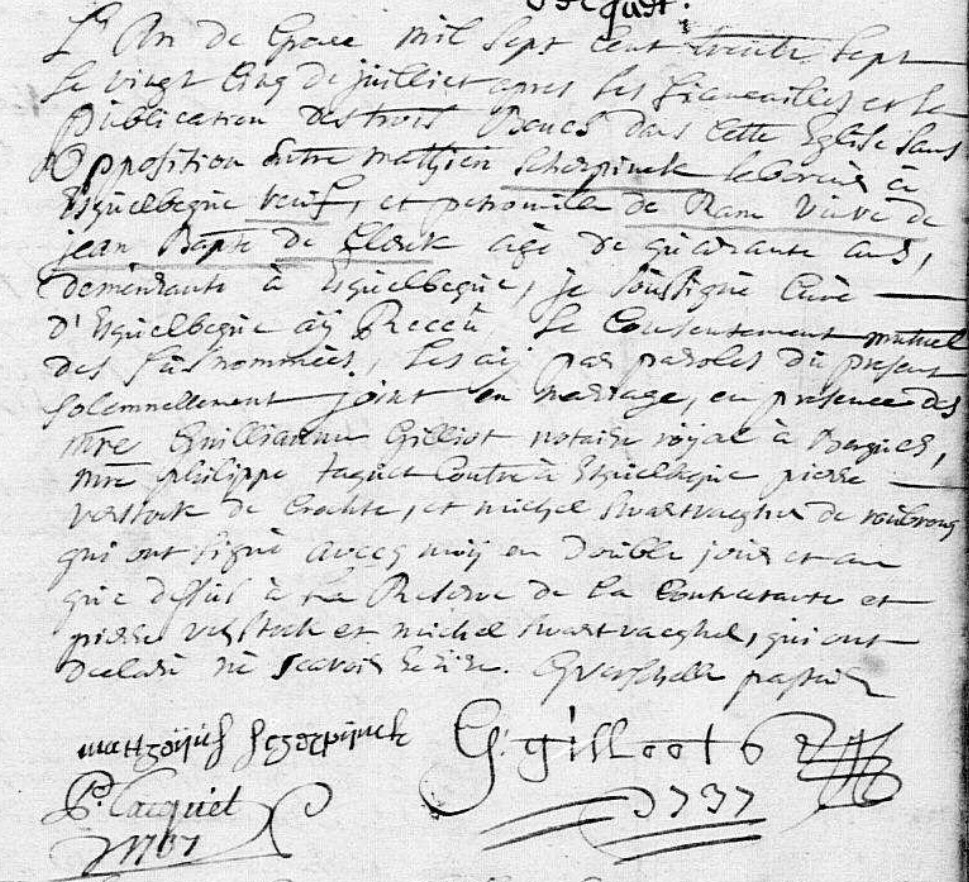 L'An de Grace mil sept cent trente sept
le vingt cinq de juilliet apres les fiancailles et la
publication des trois Bancs dans cette Eglise sans
Opposition Entre mathieu scherpinck laboriur à
Esquelbeque veuf, et petronille de Ram viuve de
jean Bapte de Clerck age de quarante ans,
demeurante à Esquelbeque, je sousigné Curé
d'Esquelbeque aij Receu le Consentement mutuel
des susnommées, les aij par paroles du present
solemnellement joint en mariage, en presence des
mre Guilliaume Gilliot notaire royal à Bergues,
mre philippe taquet Coutre à Esquelbeque pierre
verstock de Crochte, et michel swartvaegher de roubrouq
qui ont signé avecq moij en double jour et an
que dessus à la Reserve de la Contractante et
pierre verstock et michel swartvaegher, qui ont
declaré ne scavoir Ecrire. pasteur
mattheijus scherpinck
G: gilloots
1737
P. Tacquet
1737